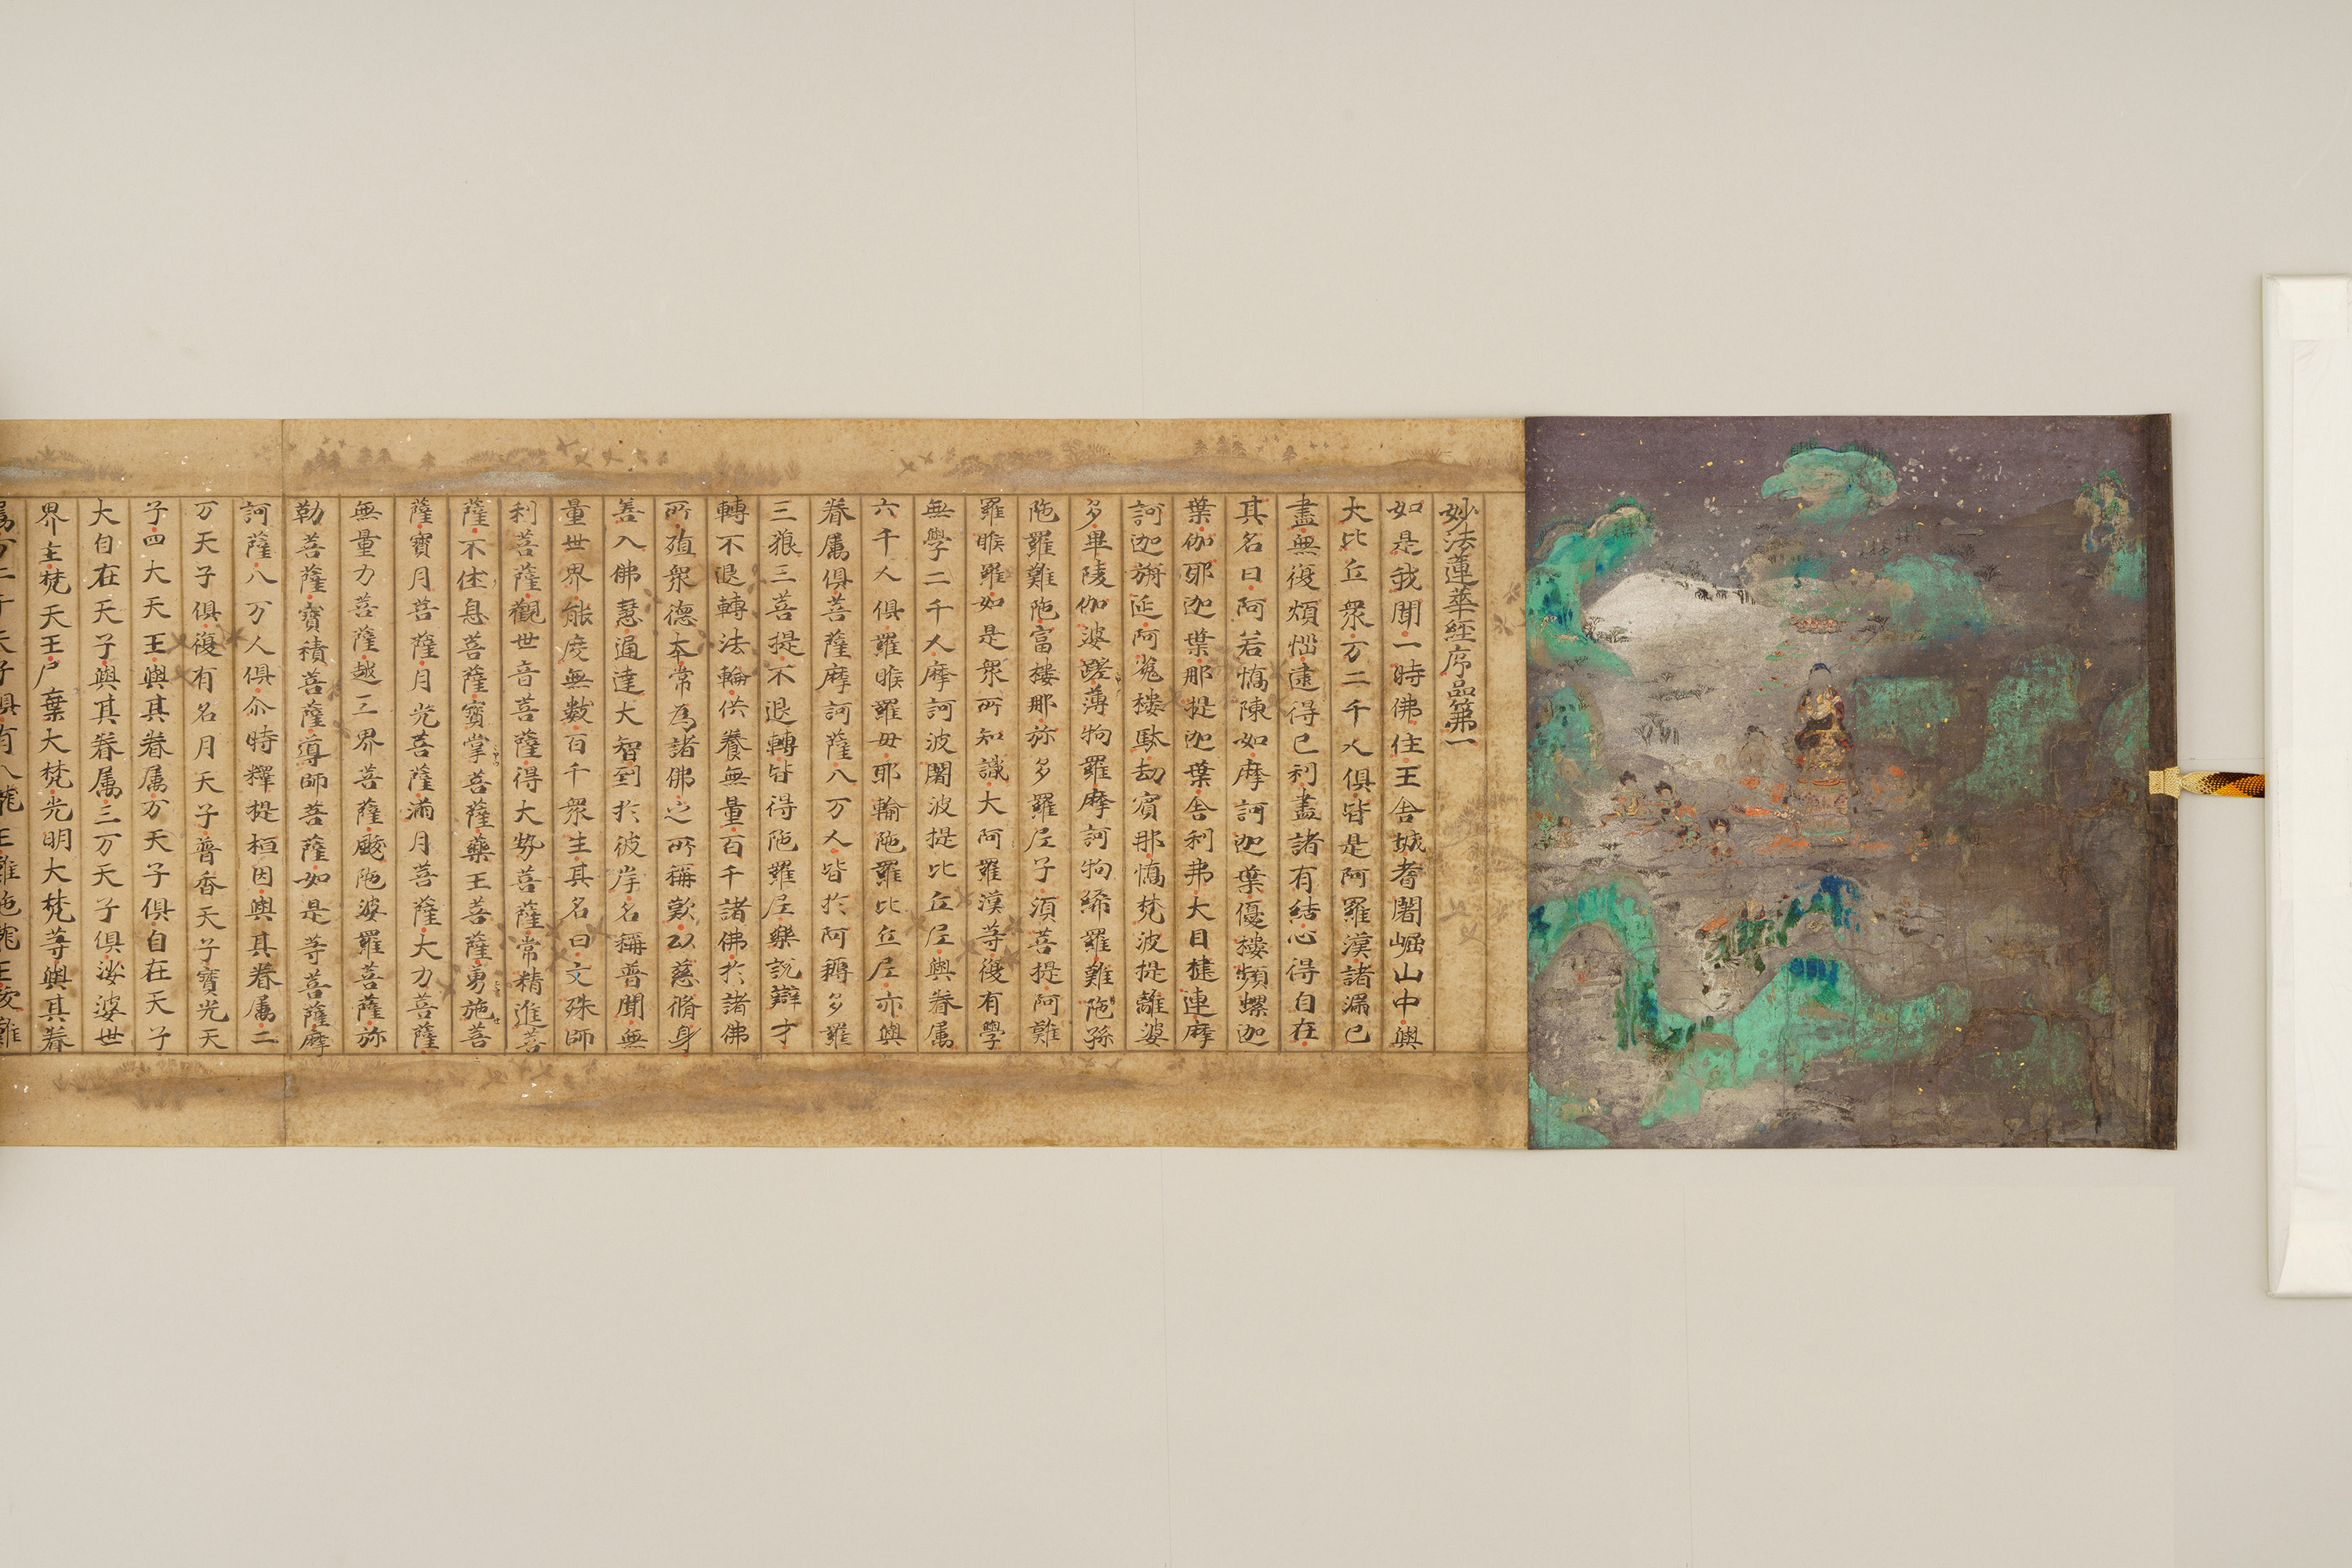 妙法蓮華経序品第一
如是我聞一時佛住王舎城耆闍崛山中與
大比丘衆万二千人俱皆是阿羅漢諸漏已
盡無復煩惱逮得己利盡諸有結心得自在
其名曰阿若憍陳如摩訶迦葉優樓頻螺迦
葉伽耶迦葉那提迦葉舎利弗大目揵連摩
訶迦旃延阿㝹樓馱劫賓那憍梵波提離婆
多畢陵伽婆蹉薄拘羅摩訶拘絺羅難陁孫
陁羅難陁富樓那弥多羅尼子須菩提阿難
羅睺羅如是衆所知識大阿羅漢等復有學
無學二千人摩訶波闍波提比丘尼與眷属
六千人俱羅睺羅毋耶輸陁羅比丘尼亦與
眷属俱菩薩摩訶薩八万人皆於阿耨多羅
三藐三菩提不退轉皆得陁羅尼樂說辯才
轉不退轉法輪供養無量百千諸佛於諸佛
所殖衆德本常為諸佛之所稱歎以慈脩身
善入佛慧通達大智到於彼岸名稱普聞無
量世界能度無數百千衆生其名曰文殊師
利菩薩觀世音菩薩得大勢菩薩常精進菩
薩不休息菩薩寶掌菩薩藥王菩薩勇施菩
薩寶月菩薩月光菩薩滿月菩薩大力菩薩
無量力菩薩越三界菩薩颰陁婆羅菩薩弥
勒菩薩寶積菩薩導師菩薩如是等菩薩摩
訶薩八万人俱尒時釋提桓因與其眷属二
万天子俱復有名月天子普香天子寶光天
子四大天王與其眷属万天子俱自在天子
大自在天子與其眷属三万天子俱娑婆世
界主梵天王尸棄大梵光明大梵等與其眷
属万二千天子俱有八龍王難陁龍王跋難